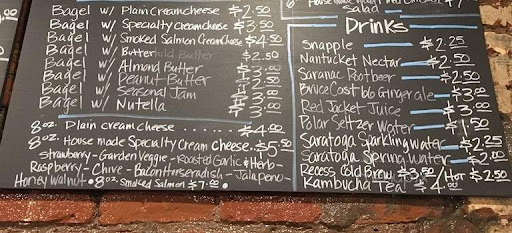 Bagel w/ Plain Creamcheese $2.50
Bagel w/ Specialty Creamcheese $3.50
Bagel w/ Smoked Salmon CreamCheese $4.50
Bagel w/ Butter $2.50
Bagel w/ Almond Butter
Bagel w/ Peanut Butter
Bagel w/ Seasonal Jam
Bagel w/ Nutella
8oz. Plain creamcheese ....... $4.00
8oz. House made Specialty Cream Cheese. $5.50
Strawberry - Garden Veggie - Roasted Garlic & Herb -
Raspberry - Chive - Bacon Horseradish - Jalapeno -
Honey Walnut • 8oz. Smoked Salmon $7.00 •
Salad
Drinks
Snapple $2.25
Nantucket Nectar $2.50
Saranac Rootbeer $2.50
Bruce Cost 66 Ginger ale $3.00
Red Jacket Juice $3.00
Polar Seltzer Water $1.50
Saratoga Sparkling Water $2.25
Saratoga Spring Water $2.00
Recess Cold Brew $3.50/Hot $2.50
Kambucha Tea! $4.00